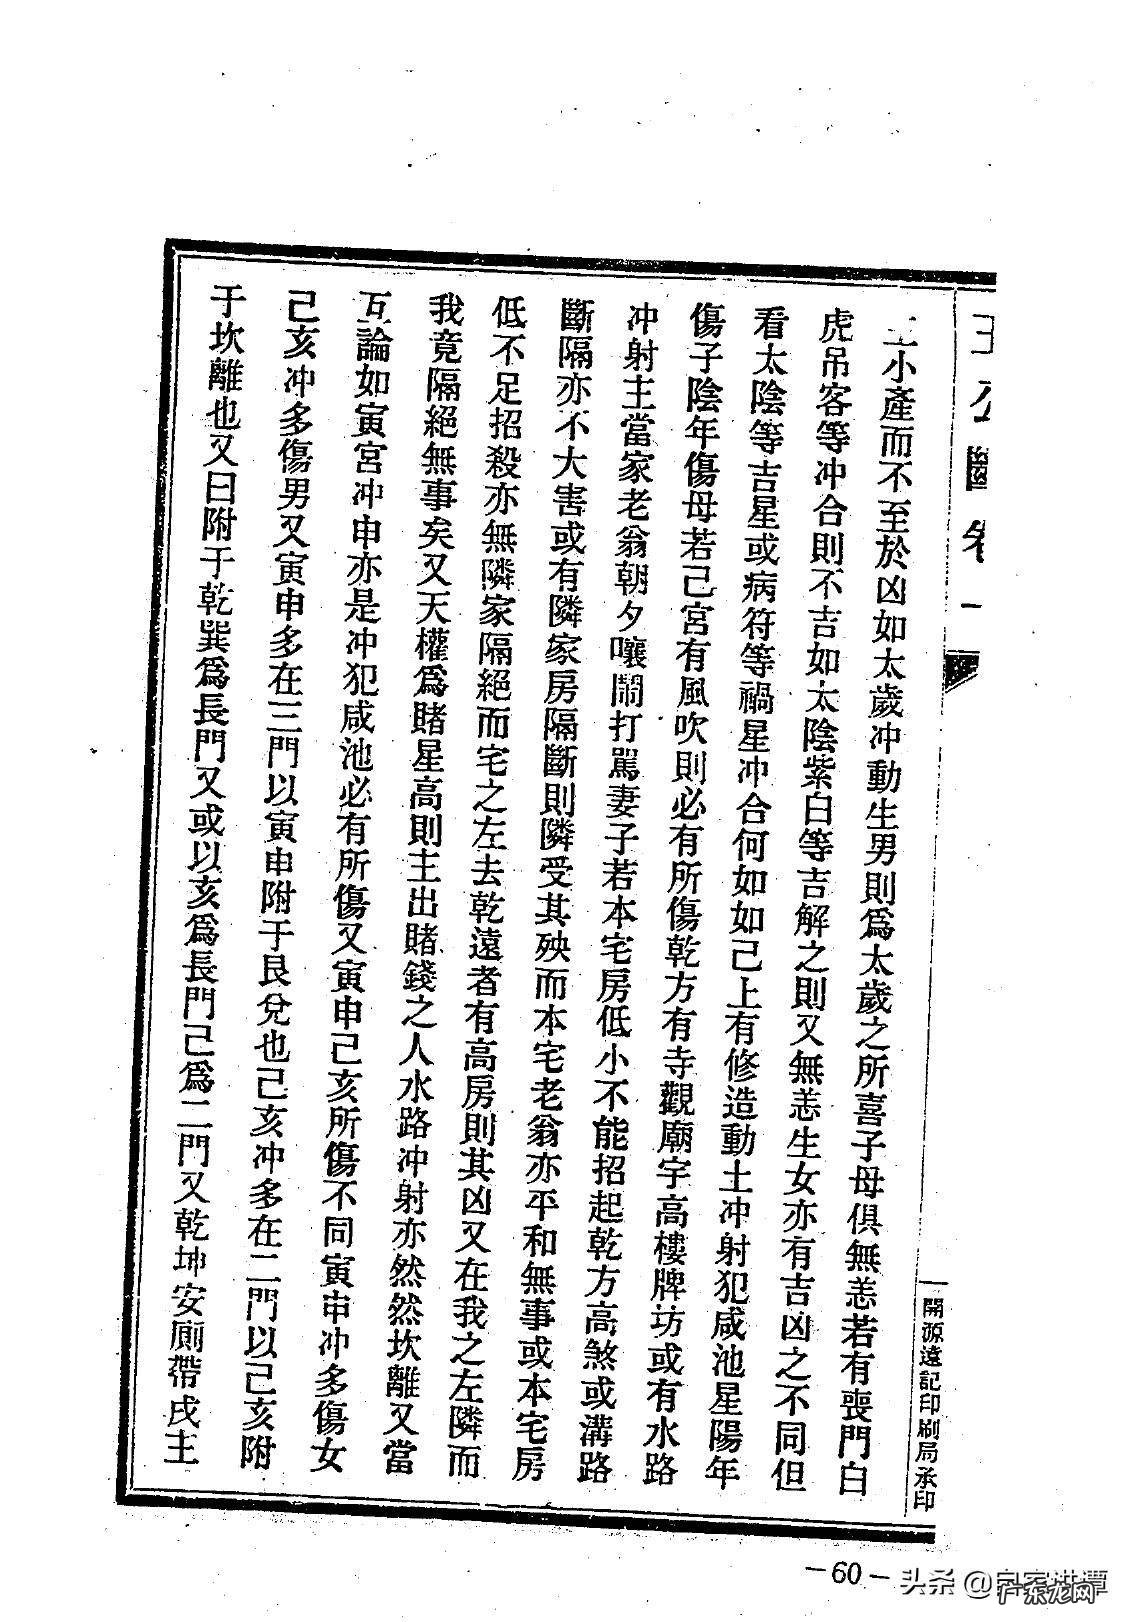 王公國卷一
開源遠記印刷局承印
小產而不至於凶如太歲冲動生男則爲太歲之所喜子母俱無恙若有喪門白
虎吊客等冲合則不吉如太陰紫白等吉解之則又無恙生女亦有吉凶之不同但
看太陰等吉星或病符等禍星冲合何如如己上有修造動土冲射犯咸池星陽年
傷子陰年傷母若己宮有風吹則必有所傷乾方有寺觀廟宇高樓牌坊或有水路
冲射主當家老翁朝夕嚷鬧打駡妻子若本宅房低小不能招起乾方高煞或溝路
斷隔亦不大害或有隣家房隔斷則隣受其殃而本宅老翁亦平和無事或本宅房
低不足招殺亦無隣家隔絕而宅之左去乾遠者有高房則其凶又在我之左隣而
我竟隔絕無事矣又天權爲賭星高則主出賭錢之人水路冲射亦然然坎離又當
互論如寅宮冲申亦是冲犯咸池必有所傷又寅申己亥所傷不同寅申冲多傷女
己亥冲多傷男又寅申多在三門以寅申附于艮兌也己亥冲多在二門以己亥附
于坎離也又曰附于乾巽爲長門又或以亥爲長門己爲二門又乾坤安廁帶戌主
-60-
头条
广东龙网